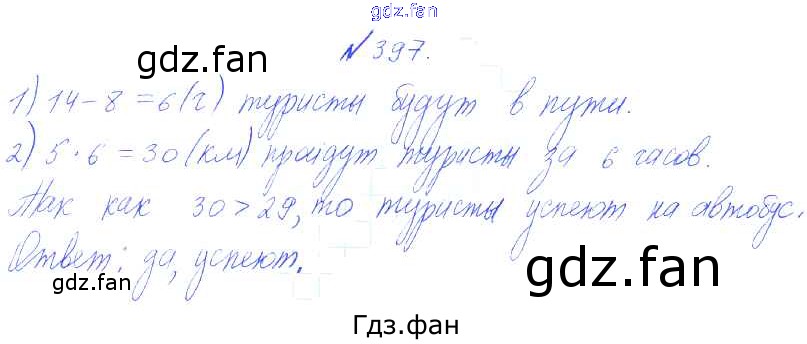 gdz.fan
gdz.fan
№ 397.
gdz.fan
1) 14 - 8 = 6 (ч) туристы будут в пути.
2) 5 · 6 = 30 (км) пройдут туристы за 6 часов.
Так как 30 > 29, то туристы успеют на автобус.
Ответ: да, успеют.
gdz.fan
gdz.fan
Гдз.фан